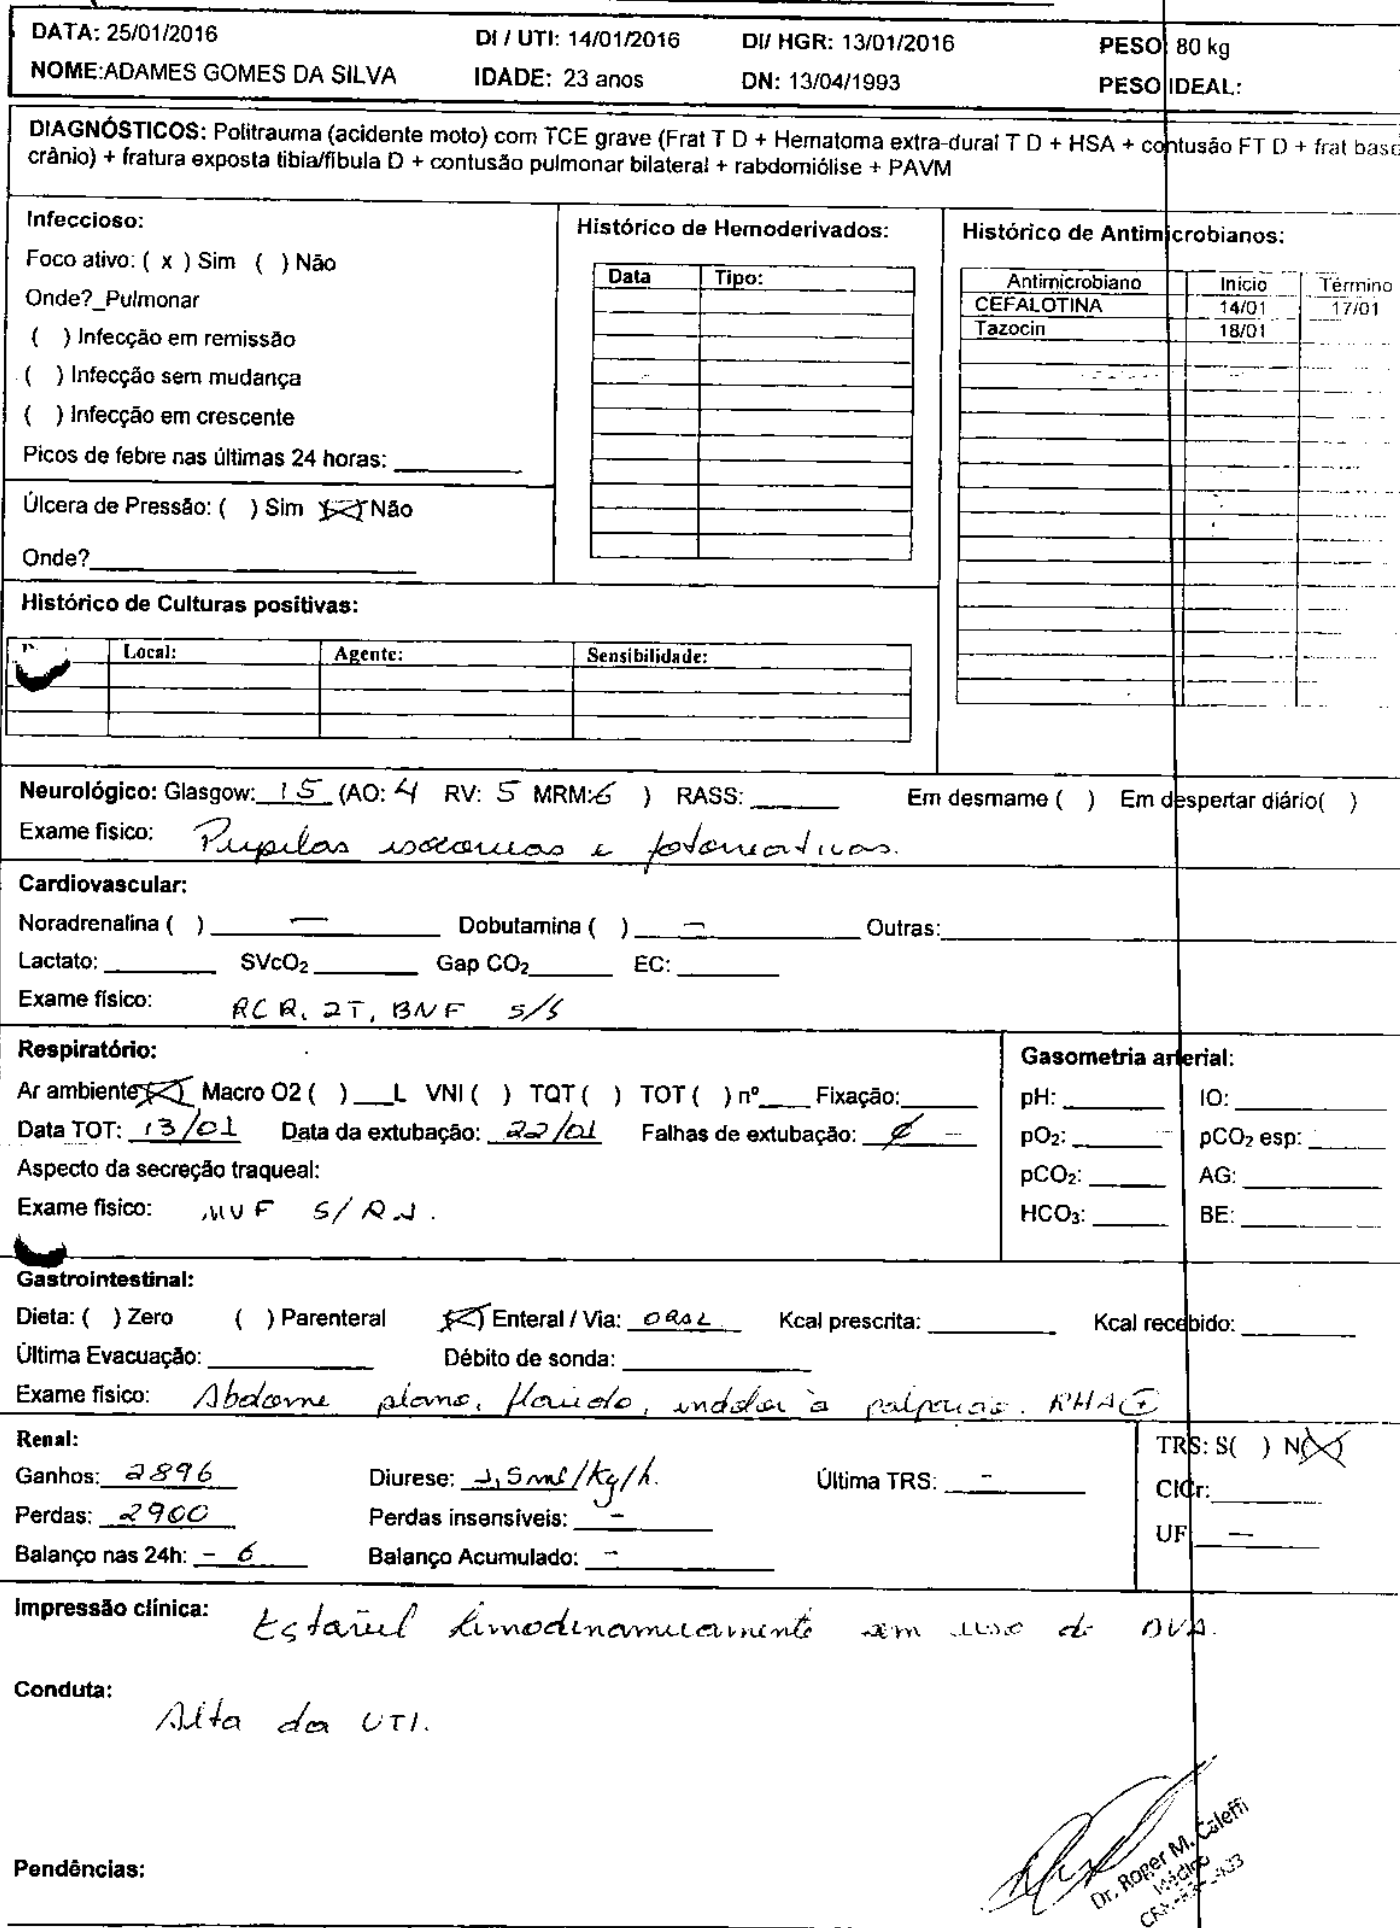 DATA: 25/01/2016 DI / UTI: 14/01/2016 DI/ HGR: 13/01/2016 PESO: 80 kg
NOME:ADAMES GOMES DA SILVA IDADE: 23 anos DN: 13/04/1993 PESO IDEAL:
DIAGNÓSTICOS: Politrauma (acidente moto) com TCE grave (Frat T D + Hematoma extra-dural T D + HSA + contusão FT D + frat base
crânio) + fratura exposta tibia/fibula D + contusão pulmonar bilateral + rabdomiólise + PAVM
Infeccioso:
Foco ativo: ( x ) Sim ( ) Não
Onde?_Pulmonar
( ) Infecção em remissão
( ) Infecção sem mudança
( ) Infecção em crescente
Picos de febre nas últimas 24 horas:
Úlcera de Pressão: ( ) Sim (X) Não
Onde?
Histórico de Hemoderivados:
Data Tipo:
Histórico de Antimicrobianos:
Antimicrobiano Início Término
CEFALOTINA 14/01 17/01
Tazocin 18/01
Histórico de Culturas positivas:
Local: Agente: Sensibilidade:
Neurológico: Glasgow: 15 (AO: 4 RV: 5 MRM: 6 ) RASS: Em desmame ( ) Em despertar diário( )
Exame físico: Pupilas isocoricas e fotoreativas.
Cardiovascular:
Noradrenalina ( ) — Dobutamina ( ) — Outras:
Lactato: SVcO2 Gap CO2 EC:
Exame físico: RCR, 2T, BNF S/S
Respiratório:
Ar ambiente (X) Macro O2 ( ) L VNI ( ) TQT ( ) TOT ( ) nº Fixação:
Data TOT: 13/01 Data da extubação: 22/01 Falhas de extubação:
Aspecto da secreção traqueal:
Exame físico: MVF S/ RA.
Gasometria arterial:
pH: IO:
pO2: pCO2 esp:
pCO2: AG:
HCO3: BE:
Gastrointestinal:
Dieta: ( ) Zero ( ) Parenteral (X) Enteral / Via: ORAL Kcal prescrita: Kcal recebido:
Última Evacuação: Débito de sonda:
Exame físico: Abdome plano, flácido, indolor à palpação. RHA (+)
Renal:
Ganhos: 2896 Diurese: 1,5ml/kg/h. Última TRS: -
Perdas: 2900 Perdas insensíveis: -
Balanço nas 24h: - 6 Balanço Acumulado: -
TRS: S( ) N(X)
ClCr:
UF —
Impressão clínica: Estável hemodinamicamente sem uso de DVA.
Conduta: Alta da UTI.
Pendências:
Dr. Roger M. Caleffi
Médico